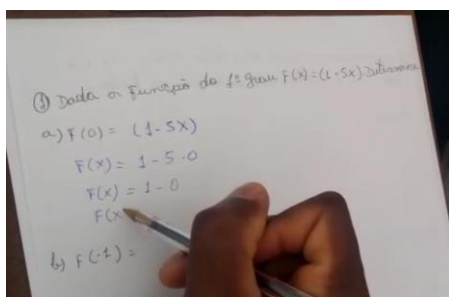 ① Dada a Função do 1º grau F(x)=(1-5x). Determine
a) F(0) = (1-5x)
F(x) = 1-5·0
F(x) = 1-0
F(x
b) F(-1) =